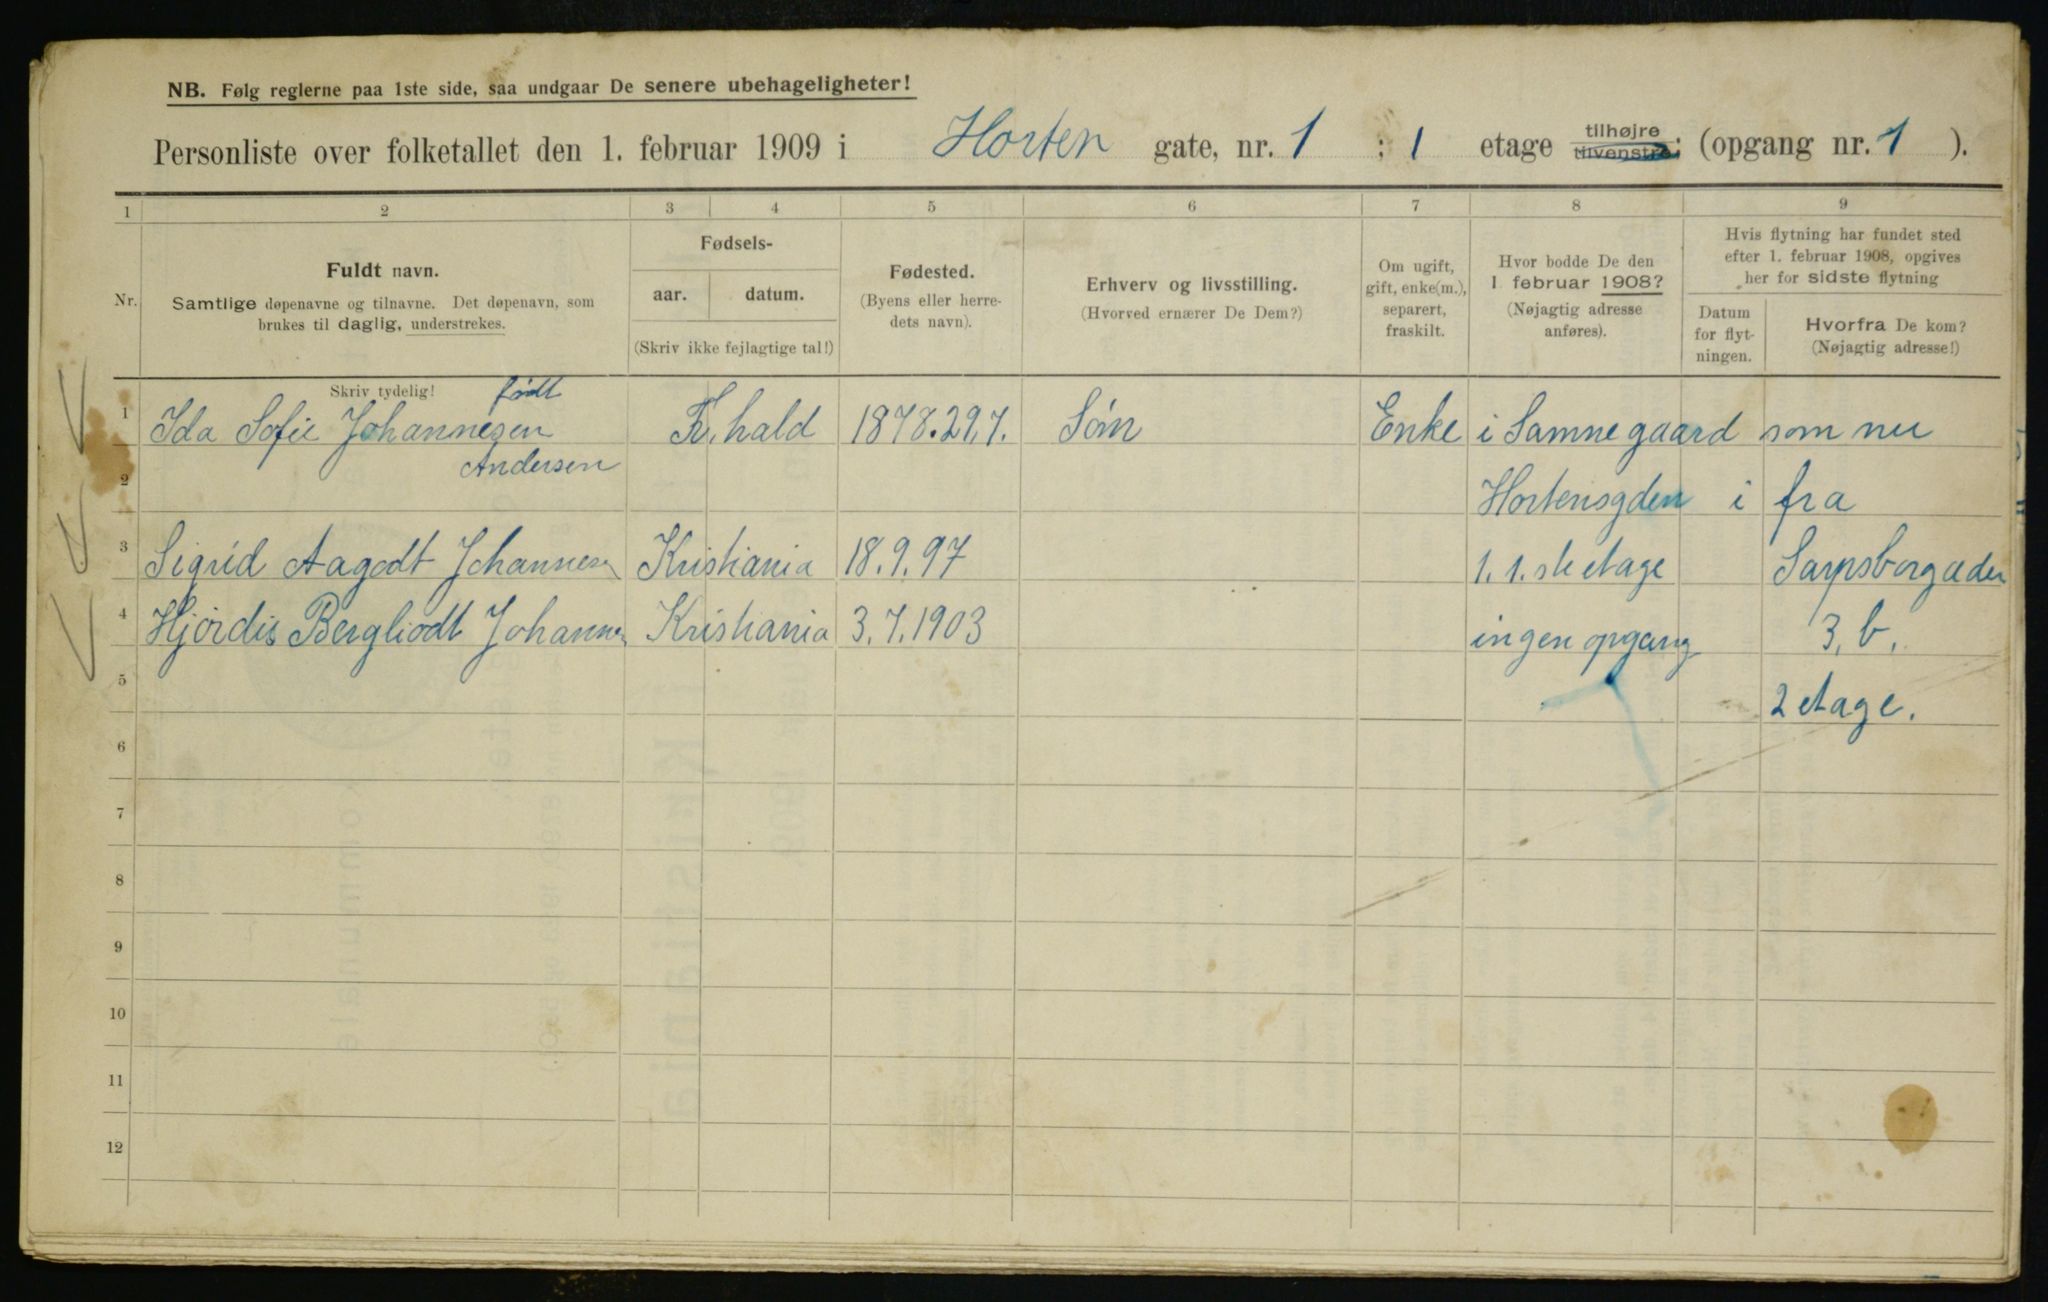 NB. Følg reglerne paa 1ste side, saa undgaar De senere ubehageligheter!
Personliste over folketallet den 1. februar 1909 i Horten gate, nr. 1 ; 1 etage tilhøjre tilvenstre; (opgang nr. 1 ).
1 2 3 4 5 6 7 8 9
Nr.
Fuldt navn.
Samtlige døpenavne og tilnavne. Det døpenavn, som
brukes til daglig, understrekes.
Fødsels-
aar. datum.
(Skriv ikke fejlagtige tal!)
Fødested.
(Byens eller herre-
dets navn).
Erhverv og livsstilling.
(Hvorved ernærer De Dem?)
Om ugift,
gift, enke(m.),
separert,
fraskilt.
Hvor bodde De den
1 februar 1908?
(Nøjagtig adresse
anføres).
Hvis flytning har fundet sted
efter 1. februar 1908, opgives
her for sidste flytning
Datum
for flyt-
ningen.
Hvorfra De kom?
(Nøjagtig adresse!)
Skriv tydelig! født
1 Ida Sofie Johannesen Fr, hald 1878.29.7. Søm Enke i Samme gaard som nu
Andersen
2 Hortensgden i fra
3 Sigrid Aagodt Johannesen Kristiania 18.9.97 1.1.ste etage Sarpsborggaden
4 Hjørdis Bergliodt Johanne Kristiania 3.7.1903 ingen opgang 3, b,
5 2 etage.
6
7
8
9
10
11
12